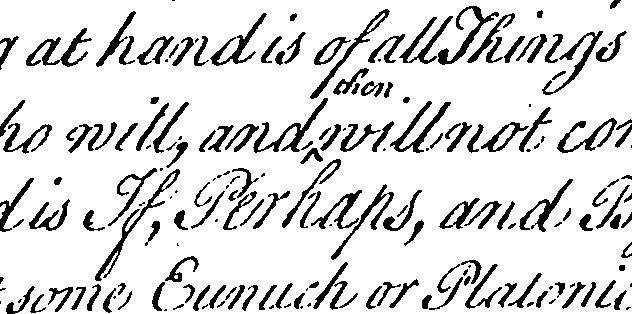 at hand is of all Things
then
will, and will not
is If, Perhaps, and
some Eunuch or Platonic